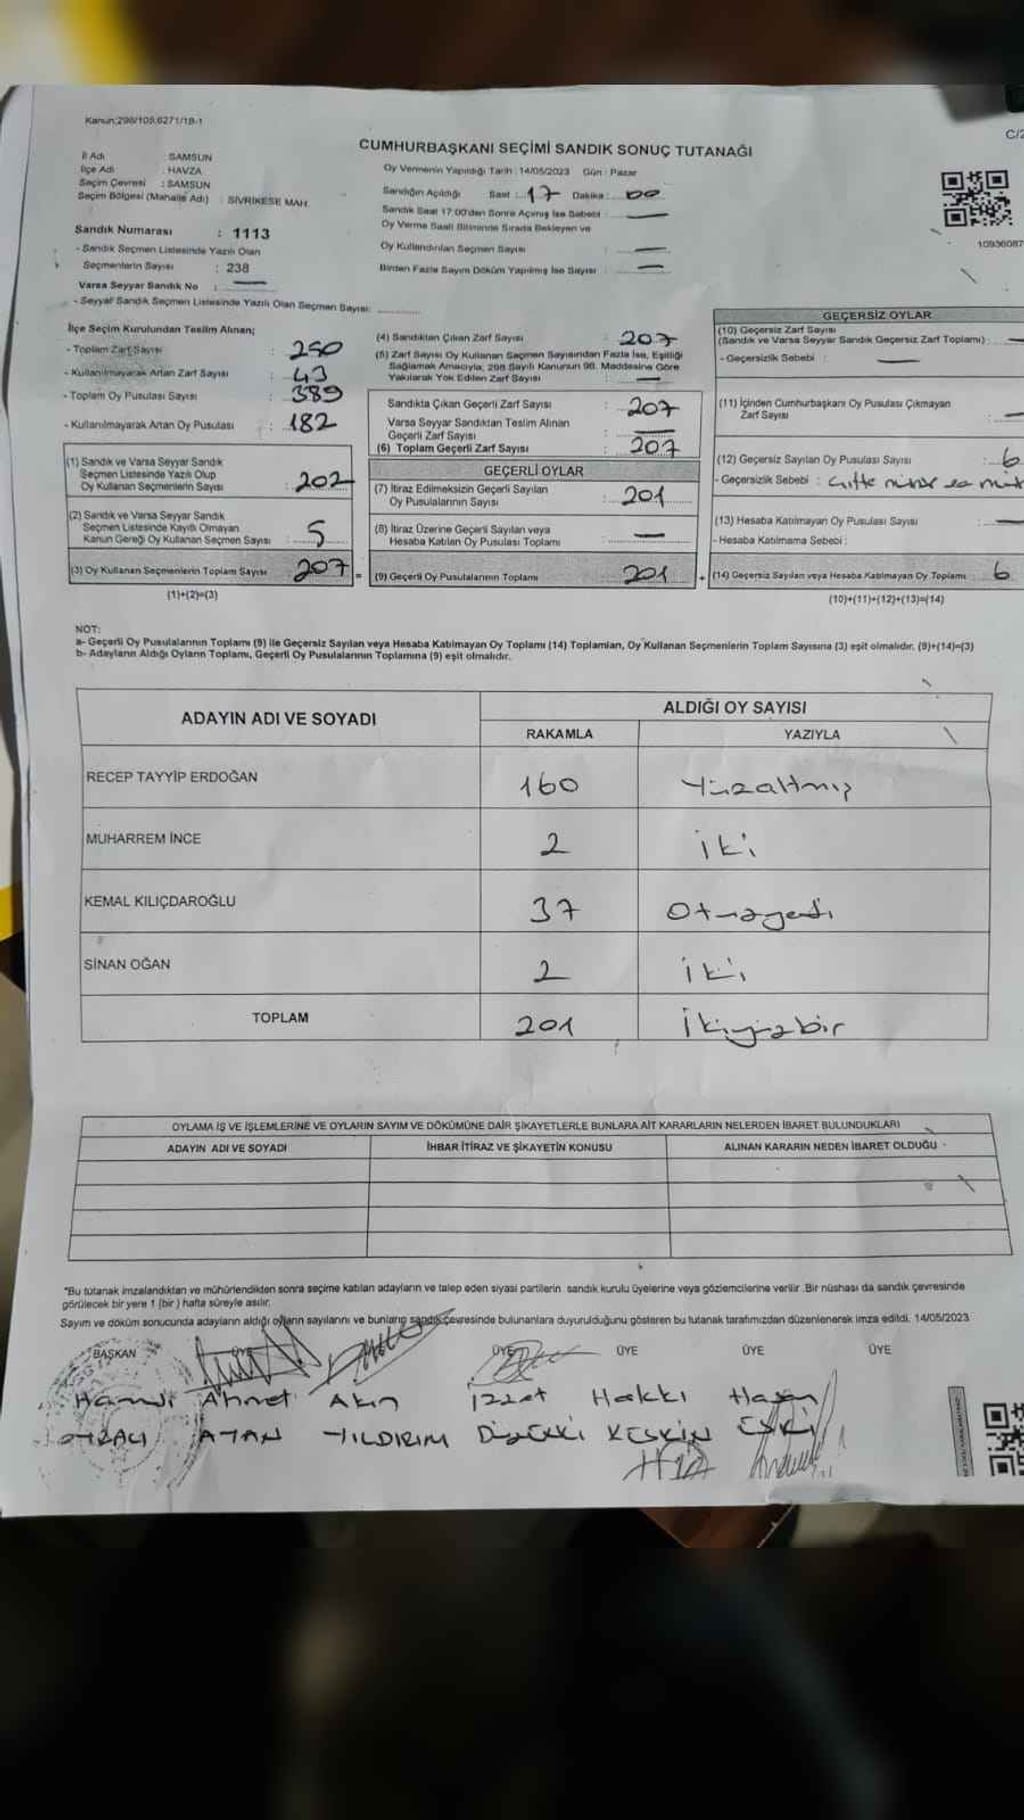 Kanun:298/105,6271/18-1
C/2
CUMHURBAŞKANI SEÇİMİ SANDIK SONUÇ TUTANAĞI
İl Adı : SAMSUN
İlçe Adı : HAVZA
Seçim Çevresi : SAMSUN
Seçim Bölgesi (Mahalle Adı) : SİVRİKESE MAH.
Oy Vermenin Yapıldığı Tarih : 14/05/2023 Gün : Pazar
Sandığın Açıldığı Saat : 17 Dakika : 00
Sandık Saat 17:00'den Sonra Açılmış İse Sebebi : —
Oy Verme Saati Bitiminde Sırada Bekleyen ve
Oy Kullandırılan Seçmen Sayısı : —
Birden Fazla Sayım Döküm Yapılmış İse Sayısı : —
10936087
Sandık Numarası : 1113
- Sandık Seçmen Listesinde Yazılı Olan
Seçmenlerin Sayısı : 238
Varsa Seyyar Sandık No : —
- Seyyar Sandık Seçmen Listesinde Yazılı Olan Seçmen Sayısı:
İlçe Seçim Kurulundan Teslim Alınan;
- Toplam Zarf Sayısı : 250
- Kullanılmayarak Artan Zarf Sayısı : 43
- Toplam Oy Pusulası Sayısı : 389
- Kullanılmayarak Artan Oy Pusulası : 182
(1) Sandık ve Varsa Seyyar Sandık
Seçmen Listesinde Yazılı Olup
Oy Kullanan Seçmenlerin Sayısı : 202
(2) Sandık ve Varsa Seyyar Sandık
Seçmen Listesinde Kayıtlı Olmayan
Kanun Gereği Oy Kullanan Seçmen Sayısı : 5
(3) Oy Kullanan Seçmenlerin Toplam Sayısı 207
(1)+(2)=(3)
(4) Sandıktan Çıkan Zarf Sayısı : 207
(5) Zarf Sayısı Oy Kullanan Seçmen Sayısından Fazla İse, Eşitliği
Sağlamak Amacıyla, 298 Sayılı Kanunun 98. Maddesine Göre
Yakılarak Yok Edilen Zarf Sayısı : —
Sandıkta Çıkan Geçerli Zarf Sayısı : 207
Varsa Seyyar Sandıktan Teslim Alınan
Geçerli Zarf Sayısı : —
(6) Toplam Geçerli Zarf Sayısı : 207
GEÇERLİ OYLAR
(7) İtiraz Edilmeksizin Geçerli Sayılan
Oy Pusulalarının Sayısı : 201
(8) İtiraz Üzerine Geçerli Sayılan veya
Hesaba Katılan Oy Pusulası Toplamı : —
= (9) Geçerli Oy Pusulalarının Toplamı 201
GEÇERSİZ OYLAR
(10) Geçersiz Zarf Sayısı
(Sandık ve Varsa Seyyar Sandık Geçersiz Zarf Toplamı) : —
- Geçersizlik Sebebi : —
(11) İçinden Cumhurbaşkanı Oy Pusulası Çıkmayan
Zarf Sayısı : —
(12) Geçersiz Sayılan Oy Pusulası Sayısı : 6
- Geçersizlik Sebebi :
(13) Hesaba Katılmayan Oy Pusulası Sayısı : —
- Hesaba Katılmama Sebebi :
+ (14) Geçersiz Sayılan veya Hesaba Katılmayan Oy Toplamı : 6
(10)+(11)+(12)+(13)=(14)
NOT:
a- Geçerli Oy Pusulalarının Toplamı (9) ile Geçersiz Sayılan veya Hesaba Katılmayan Oy Toplamı (14) Toplamları, Oy Kullanan Seçmenlerin Toplam Sayısına (3) eşit olmalıdır. (9)+(14)=(3)
b- Adayların Aldığı Oyların Toplamı, Geçerli Oy Pusulalarının Toplamına (9) eşit olmalıdır.
ADAYIN ADI VE SOYADI
ALDIĞI OY SAYISI
RAKAMLA YAZIYLA
RECEP TAYYİP ERDOĞAN 160 Yüzaltmış
MUHARREM İNCE 2 iki
KEMAL KILIÇDAROĞLU 37 Otuzyedi
SİNAN OĞAN 2 iki
TOPLAM 201 İkiyüzbir
OYLAMA İŞ VE İŞLEMLERİNE VE OYLARIN SAYIM VE DÖKÜMÜNE DAİR ŞİKAYETLERLE BUNLARA AİT KARARLARIN NELERDEN İBARET BULUNDUKLARI
ADAYIN ADI VE SOYADI İHBAR İTİRAZ VE ŞİKAYETİN KONUSU ALINAN KARARIN NEDEN İBARET OLDUĞU
"Bu tutanak imzalandıktan ve mühürlendikten sonra seçime katılan adayların ve talep eden siyasi partilerin sandık kurulu üyelerine veya gözlemcilerine verilir. Bir nüshası da sandık çevresinde
görülecek bir yere 1 (bir) hafta süreyle asılır.
Sayım ve döküm sonucunda adayların aldığı oyların sayılarını ve bunların sandık çevresinde bulunanlara duyurulduğunu gösteren bu tutanak tarafımızdan düzenlenerek imza edildi. 14/05/2023
BAŞKAN ÜYE ÜYE ÜYE ÜYE ÜYE
Hamdi Ahmet Akın İzzet Hakkı Hasan
AYAN YILDIRIM KESKİN ESKİ